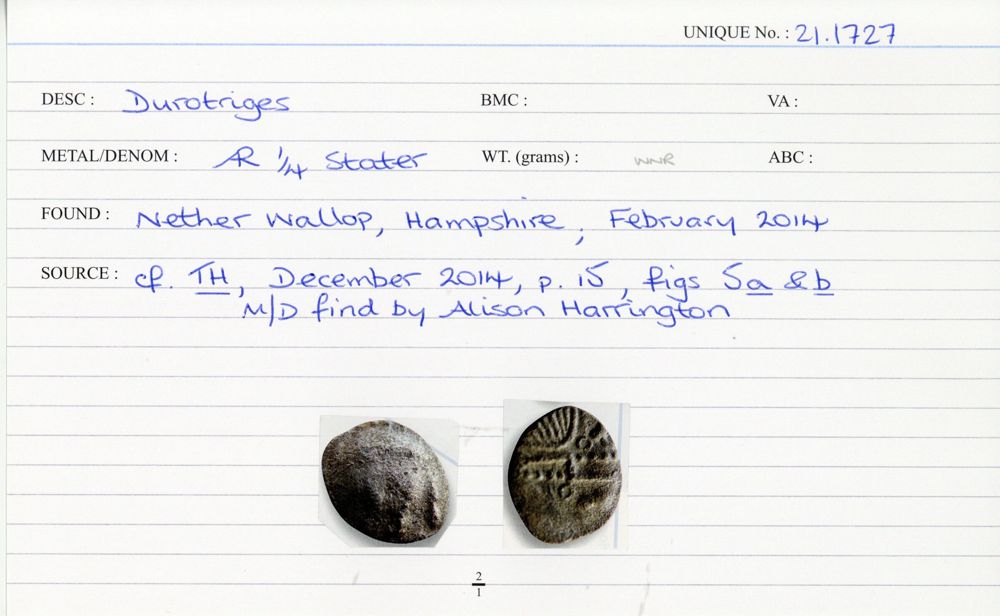 UNIQUE No. : 21.1727
DESC : Durotriges BMC : VA :
METAL/DENOM : AR 1/4 Stater WT. (grams) : WNR ABC :
FOUND : Nether Wallop, Hampshire, February 2014
SOURCE : cf. TH, December 2014, p. 15, figs 5a & b
M/D find by Alison Harrington
2/1